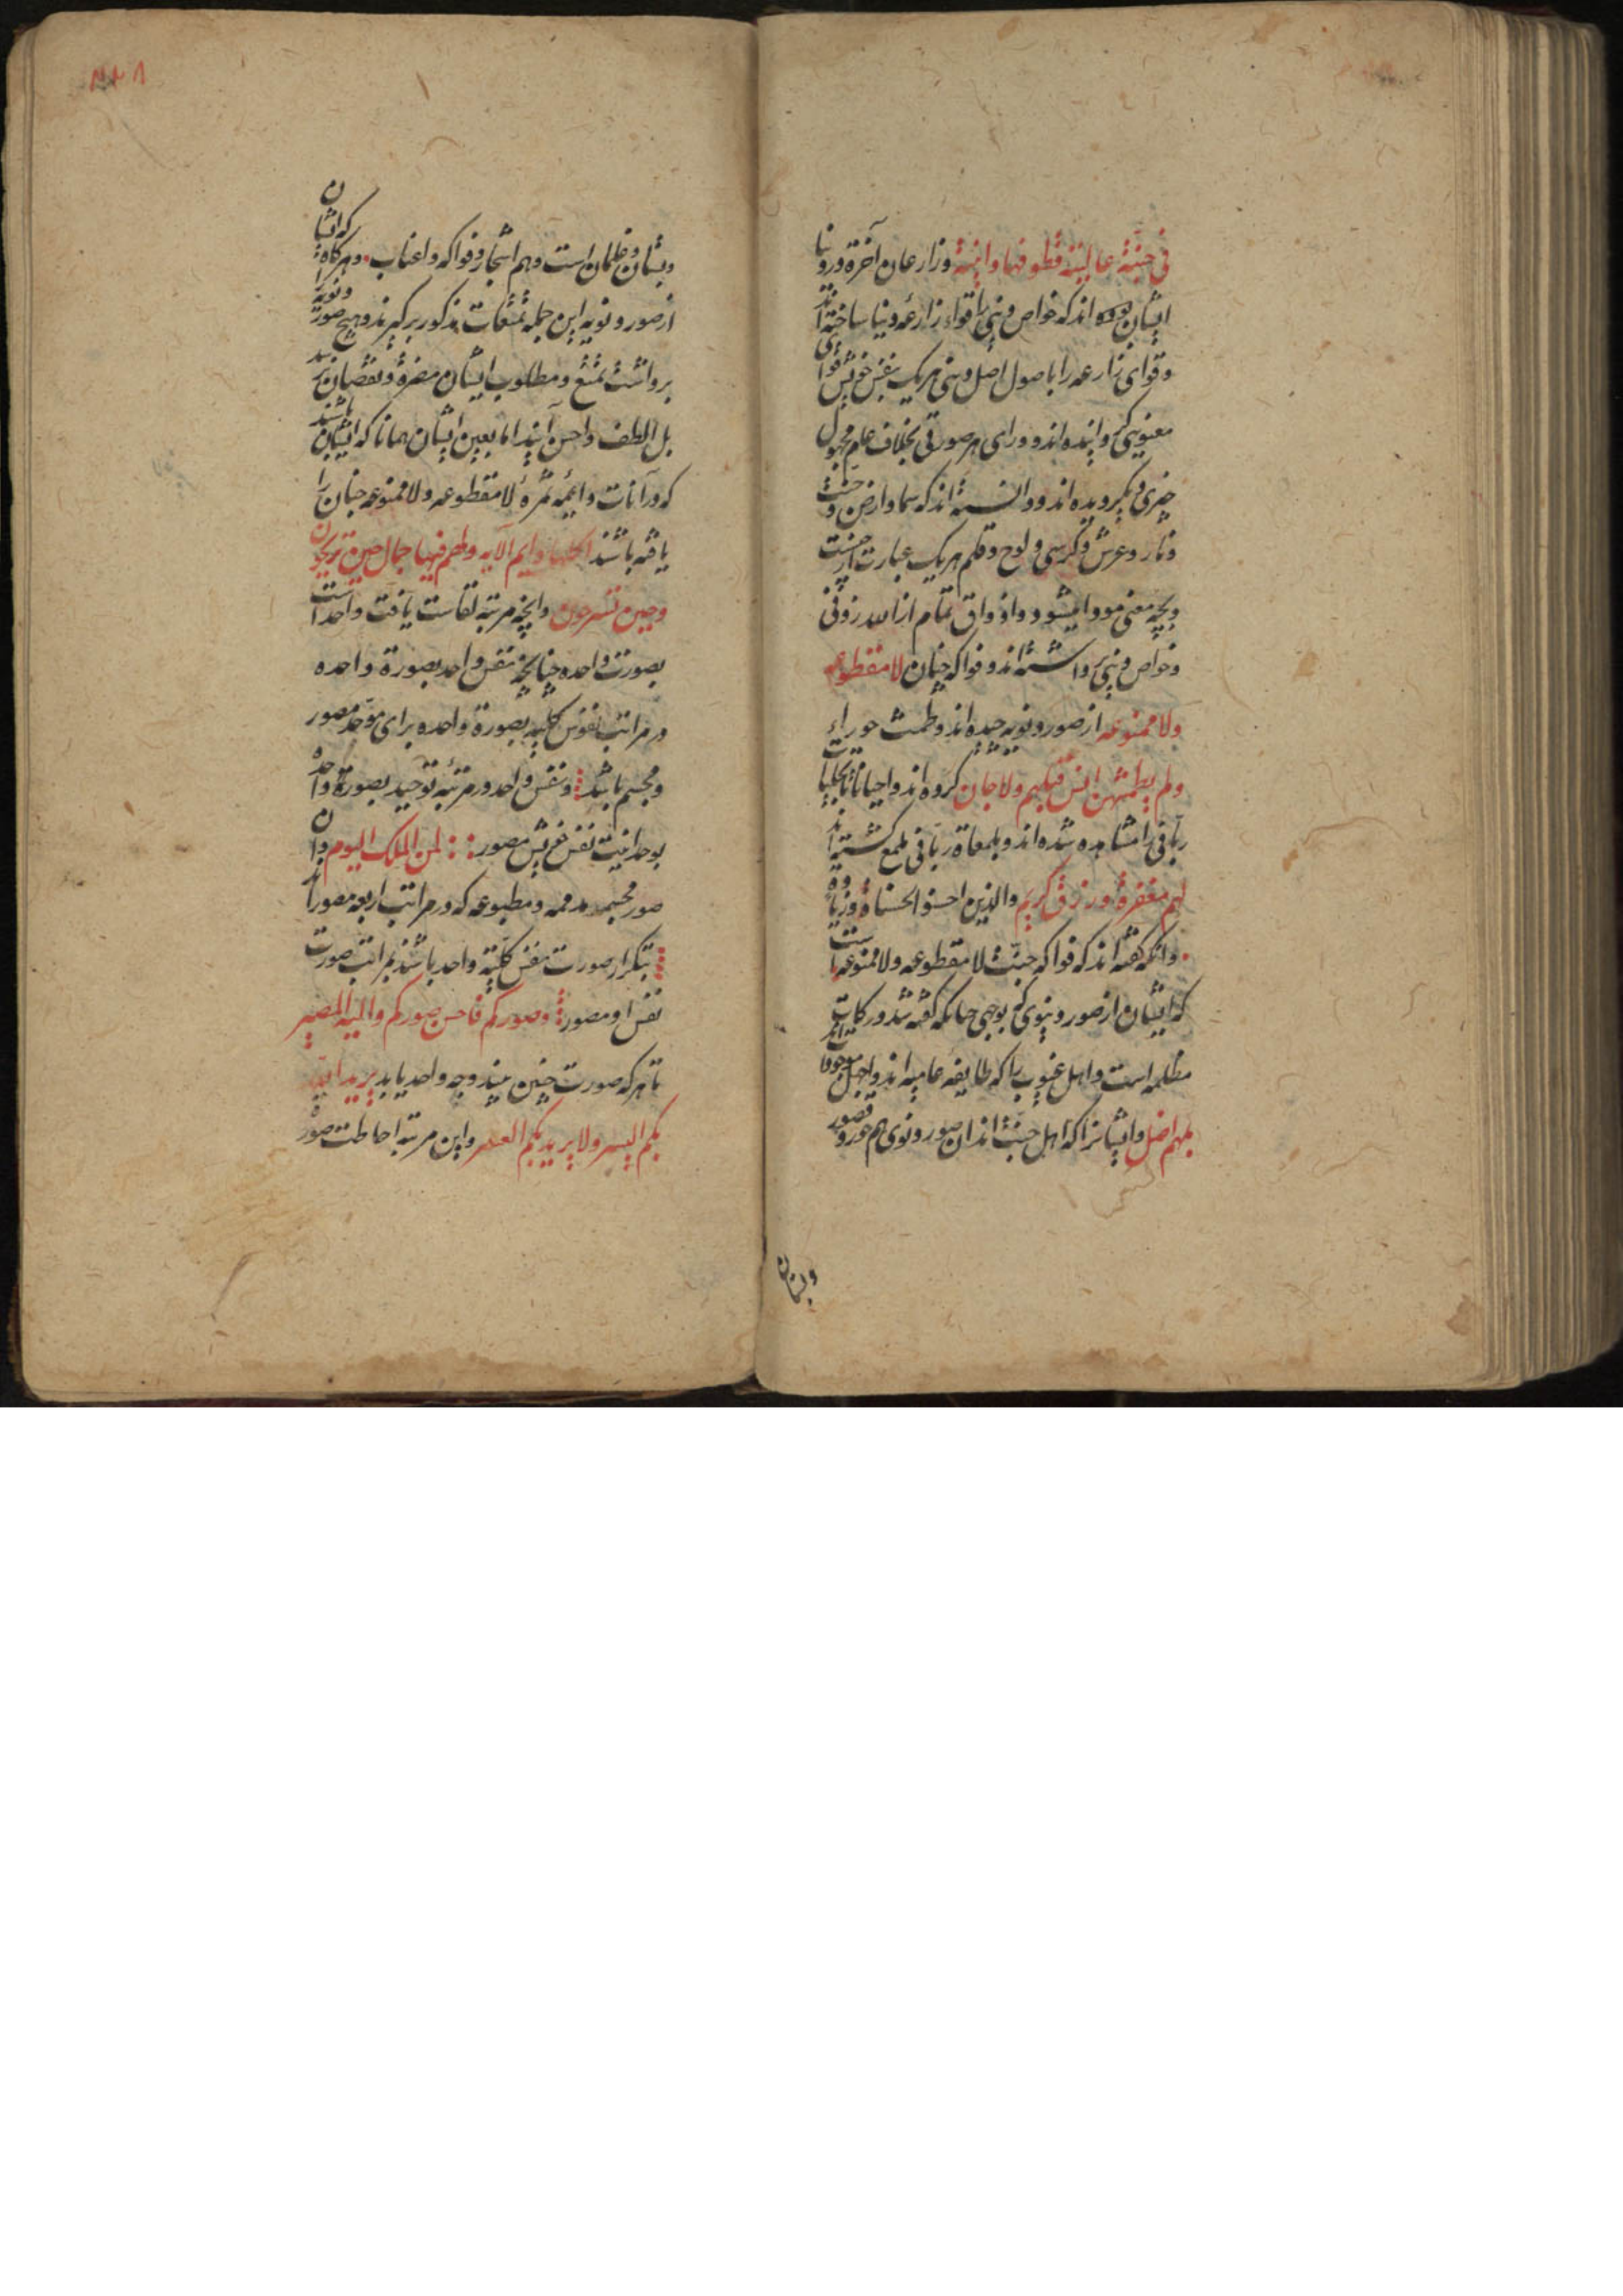 فی جنة عالیة قطوفها دانیة وزارعان آخرة در دنیا
ایشان بوده اند که خواص دینی را قواء زارعه دنیا ساخته اند
وقوای زارعه را باصول اصل دینی هر یک بنفس خویش قوای
معنوی گردانیده اند وورای هر صورتی بخلاف علم مجهول
چیزی دیگر دیده اند ودانسته اند که سما وارض وجنت
ونار وعرش وکرسی ولوح وقلم هر یک عبارت از چیست
وبچه معنی مودا میشود واذواق تمام از الله رزقنی
وخواص دینی برداشته اند وفواکه جنان لا مقطوعه
ولا ممنوعه از صور دنویه چیده اند وطمث حوراء
ولم یطمثهن انس قبلهم ولا جان کرده اند واحیانا تجلیات
ربانی را مشاهده شده اند وبلمعات ربانی ملمع گشته اند
لهم مغفرة ورزق کریم والذین احسنوا الحسناة وزیادة
وانکه گفته اند که فواکه جنت لا مقطوعه ولا ممنوعه است
که ایشان از صور دنیوی بوجهی چنانکه گفته شد در کتابت
مظلمه است واهل عیوب را که طایفه عامیه اند واجهل موجودات
بلهم اضل وایشانرا که اهل جنت اند ان صور دنوی هم حور وقصور
وبستان
وبستان وغلمان است وهم اشجار وفواکه واعناب وهرگاه که ایشان
از صور دنویه این جمله تمتعات مذکور برگیرند وهیچ صور دنویه را
برداشت تمتع ومطلوب ایشان مضرة ونقصان نرسد
بل الطف واحسن آیند اما بعین ایشان همانا که ایشان باشند
که در آنات دایمه ثمره لا مقطوعه ولا ممنوعه جنان را
یافته باشند اکلها دایم الآیه ولکم فیها جمال حین تریحون
وحین تسرحون وانچه مرتبه لقاست یافت واحد است
بصورت واحده چنانچه نفس واحد بصورة واحده
در مراتب نفوس کلیه بصورة واحده برای موحد مصور
ومجسم باشد ونفس واحد در مرتبه توحید بصورة واحده
بوحدانیت نفس خویش مصور لمن الملک الیوم وان
صور مجسمه ومطبوعه که در مراتب اربعه مصور اند
بتکرار صورت نفس کلیه واحد باشند بمراتب صورت
نفس او مصور وصورکم فاحسن صورکم والیه المصیر
تا هر که صورت چنین بیند وجه واحد یابد یرید الله
بکم الیسر ولا یرید بکم العسر واین مرتبه احاطت صور